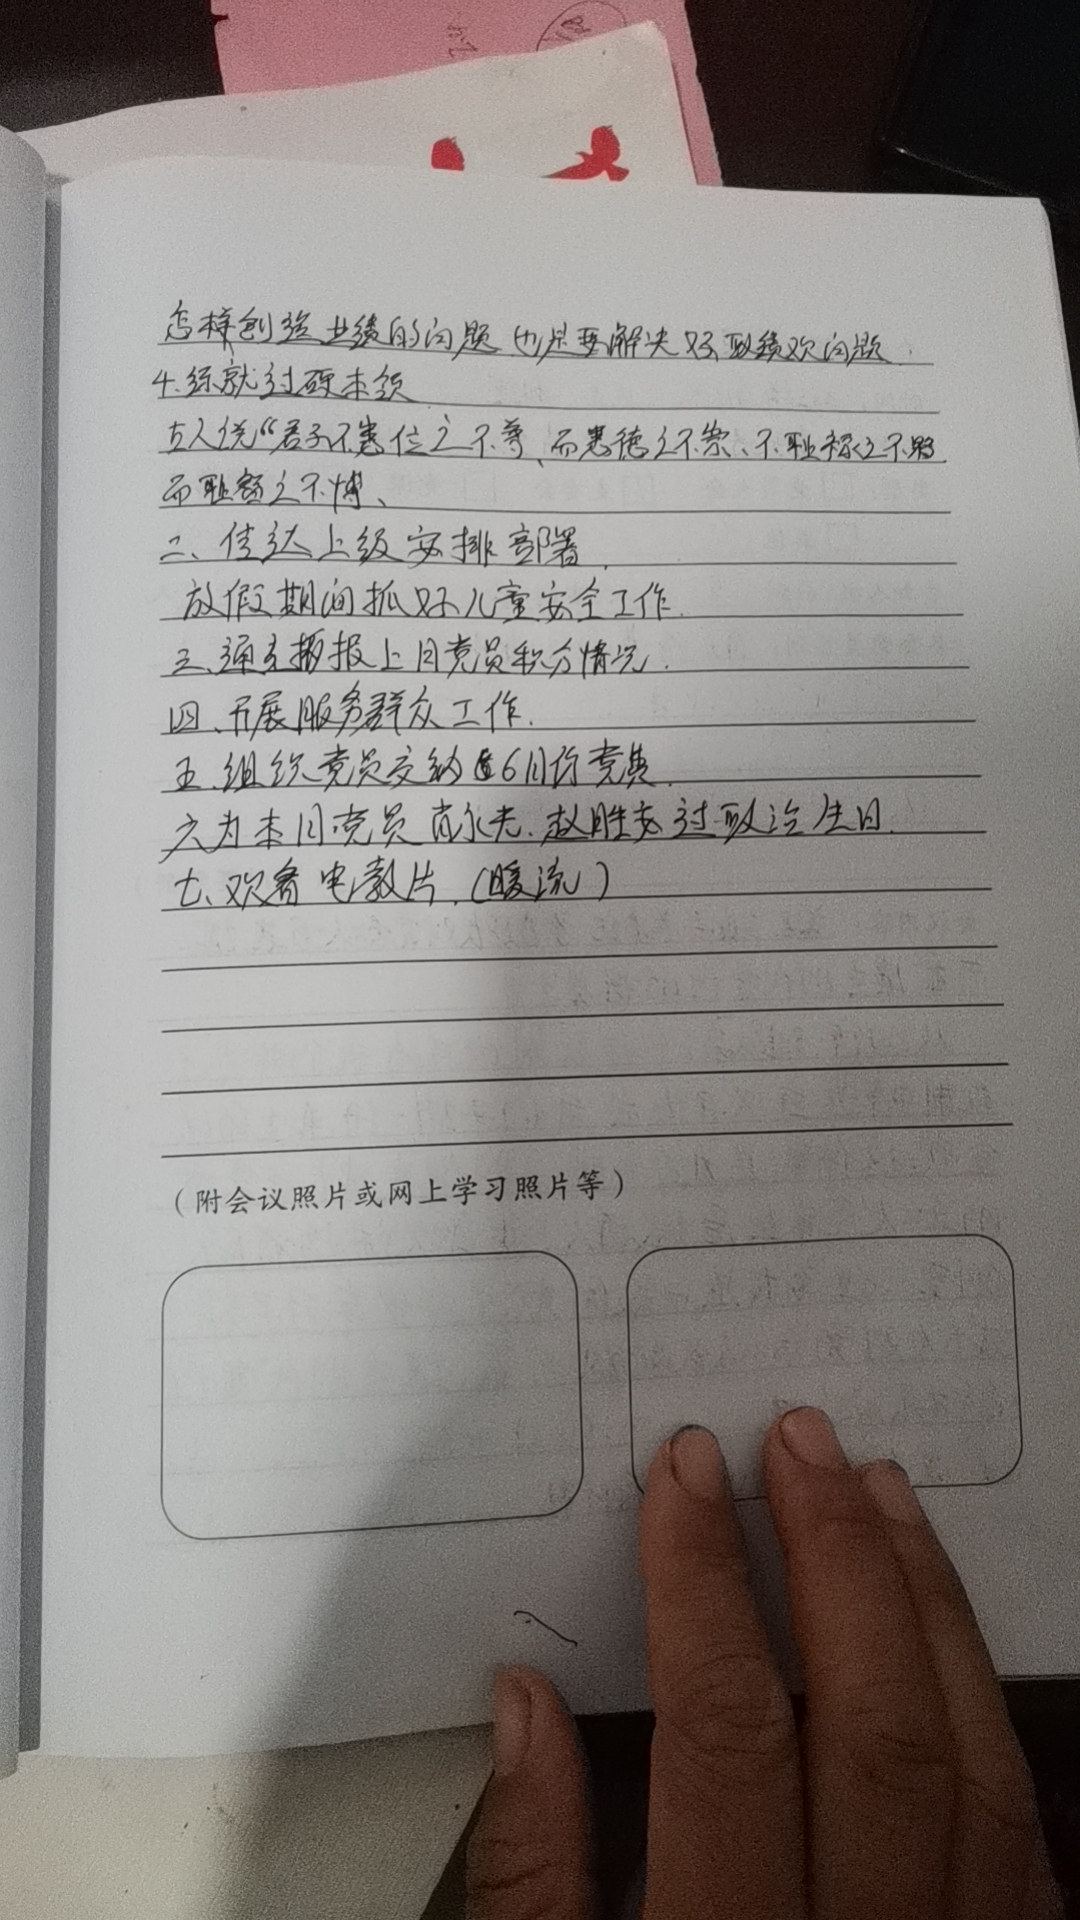 怎样创造业绩的问题也是要解决好政绩观问题.
4.练就过硬本领
古人说“君子不患位之不尊、而患德之不崇、不耻禄之不夥
而耻智之不博、
二、传达上级安排部署.
放假期间抓好儿童安全工作.
三、通报上月党员积分情况.
四、开展服务群众工作.
五.组织党员交纳6月份党费.
六为本月党员肖永先.赵胜安过政治生日.
七、观看电教片.(暖流)
(附会议照片或网上学习照片等)